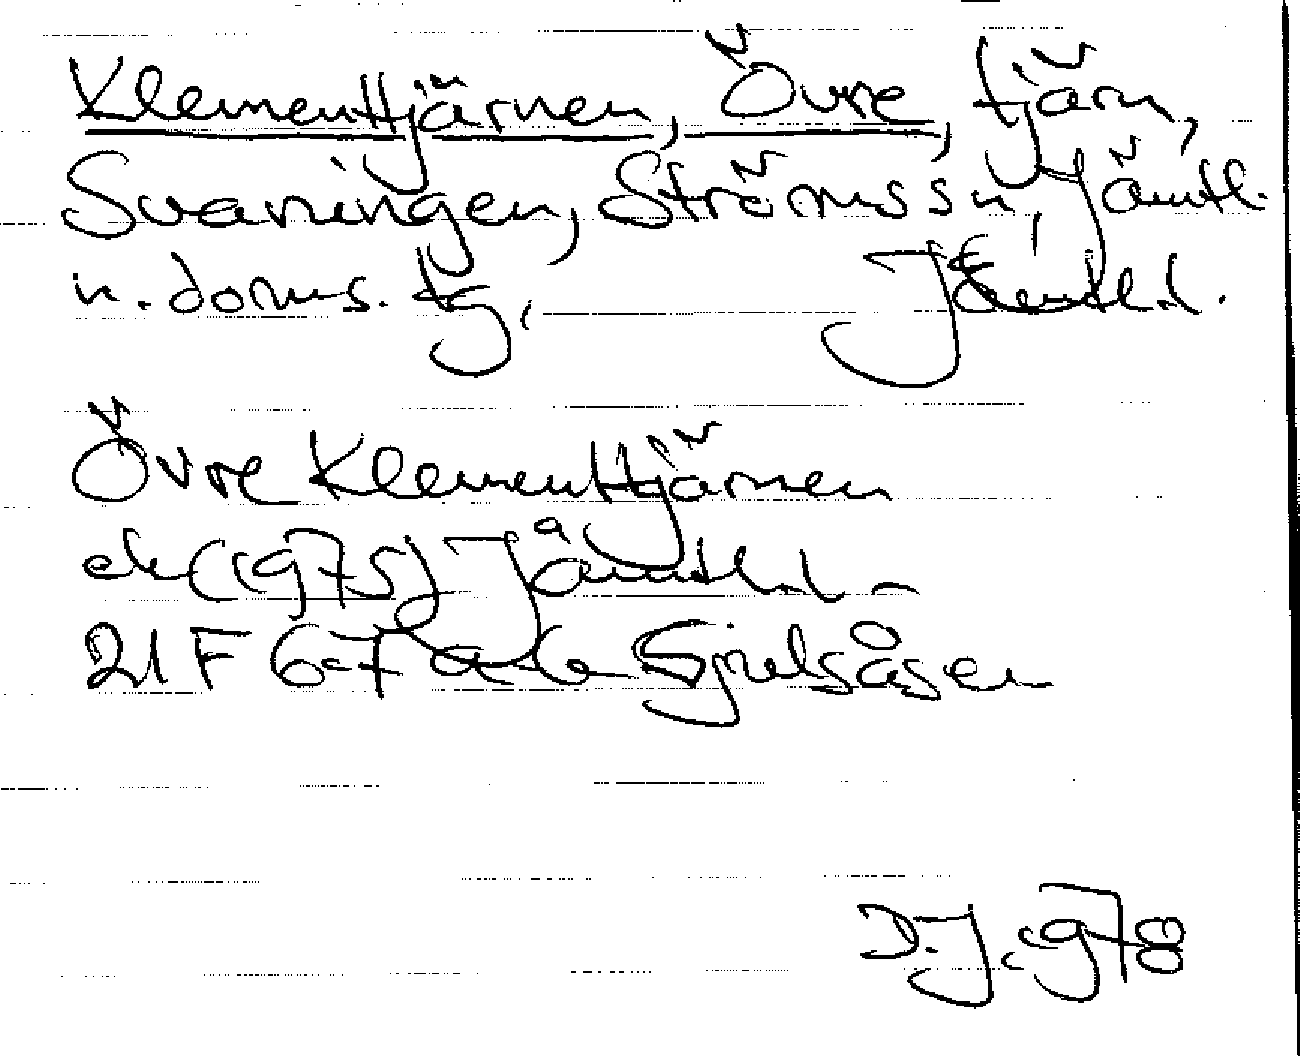 Klementtjärnen, Övre, tjärn,
Svaningen, Ströms sn, Jämtl.
n. doms. tg, Jämtl. l.
Övre Klementtjärnen
ek (1975) Jämtl. l -
21 F 6-7 a-b Gjulsåsen
D. J. 1978